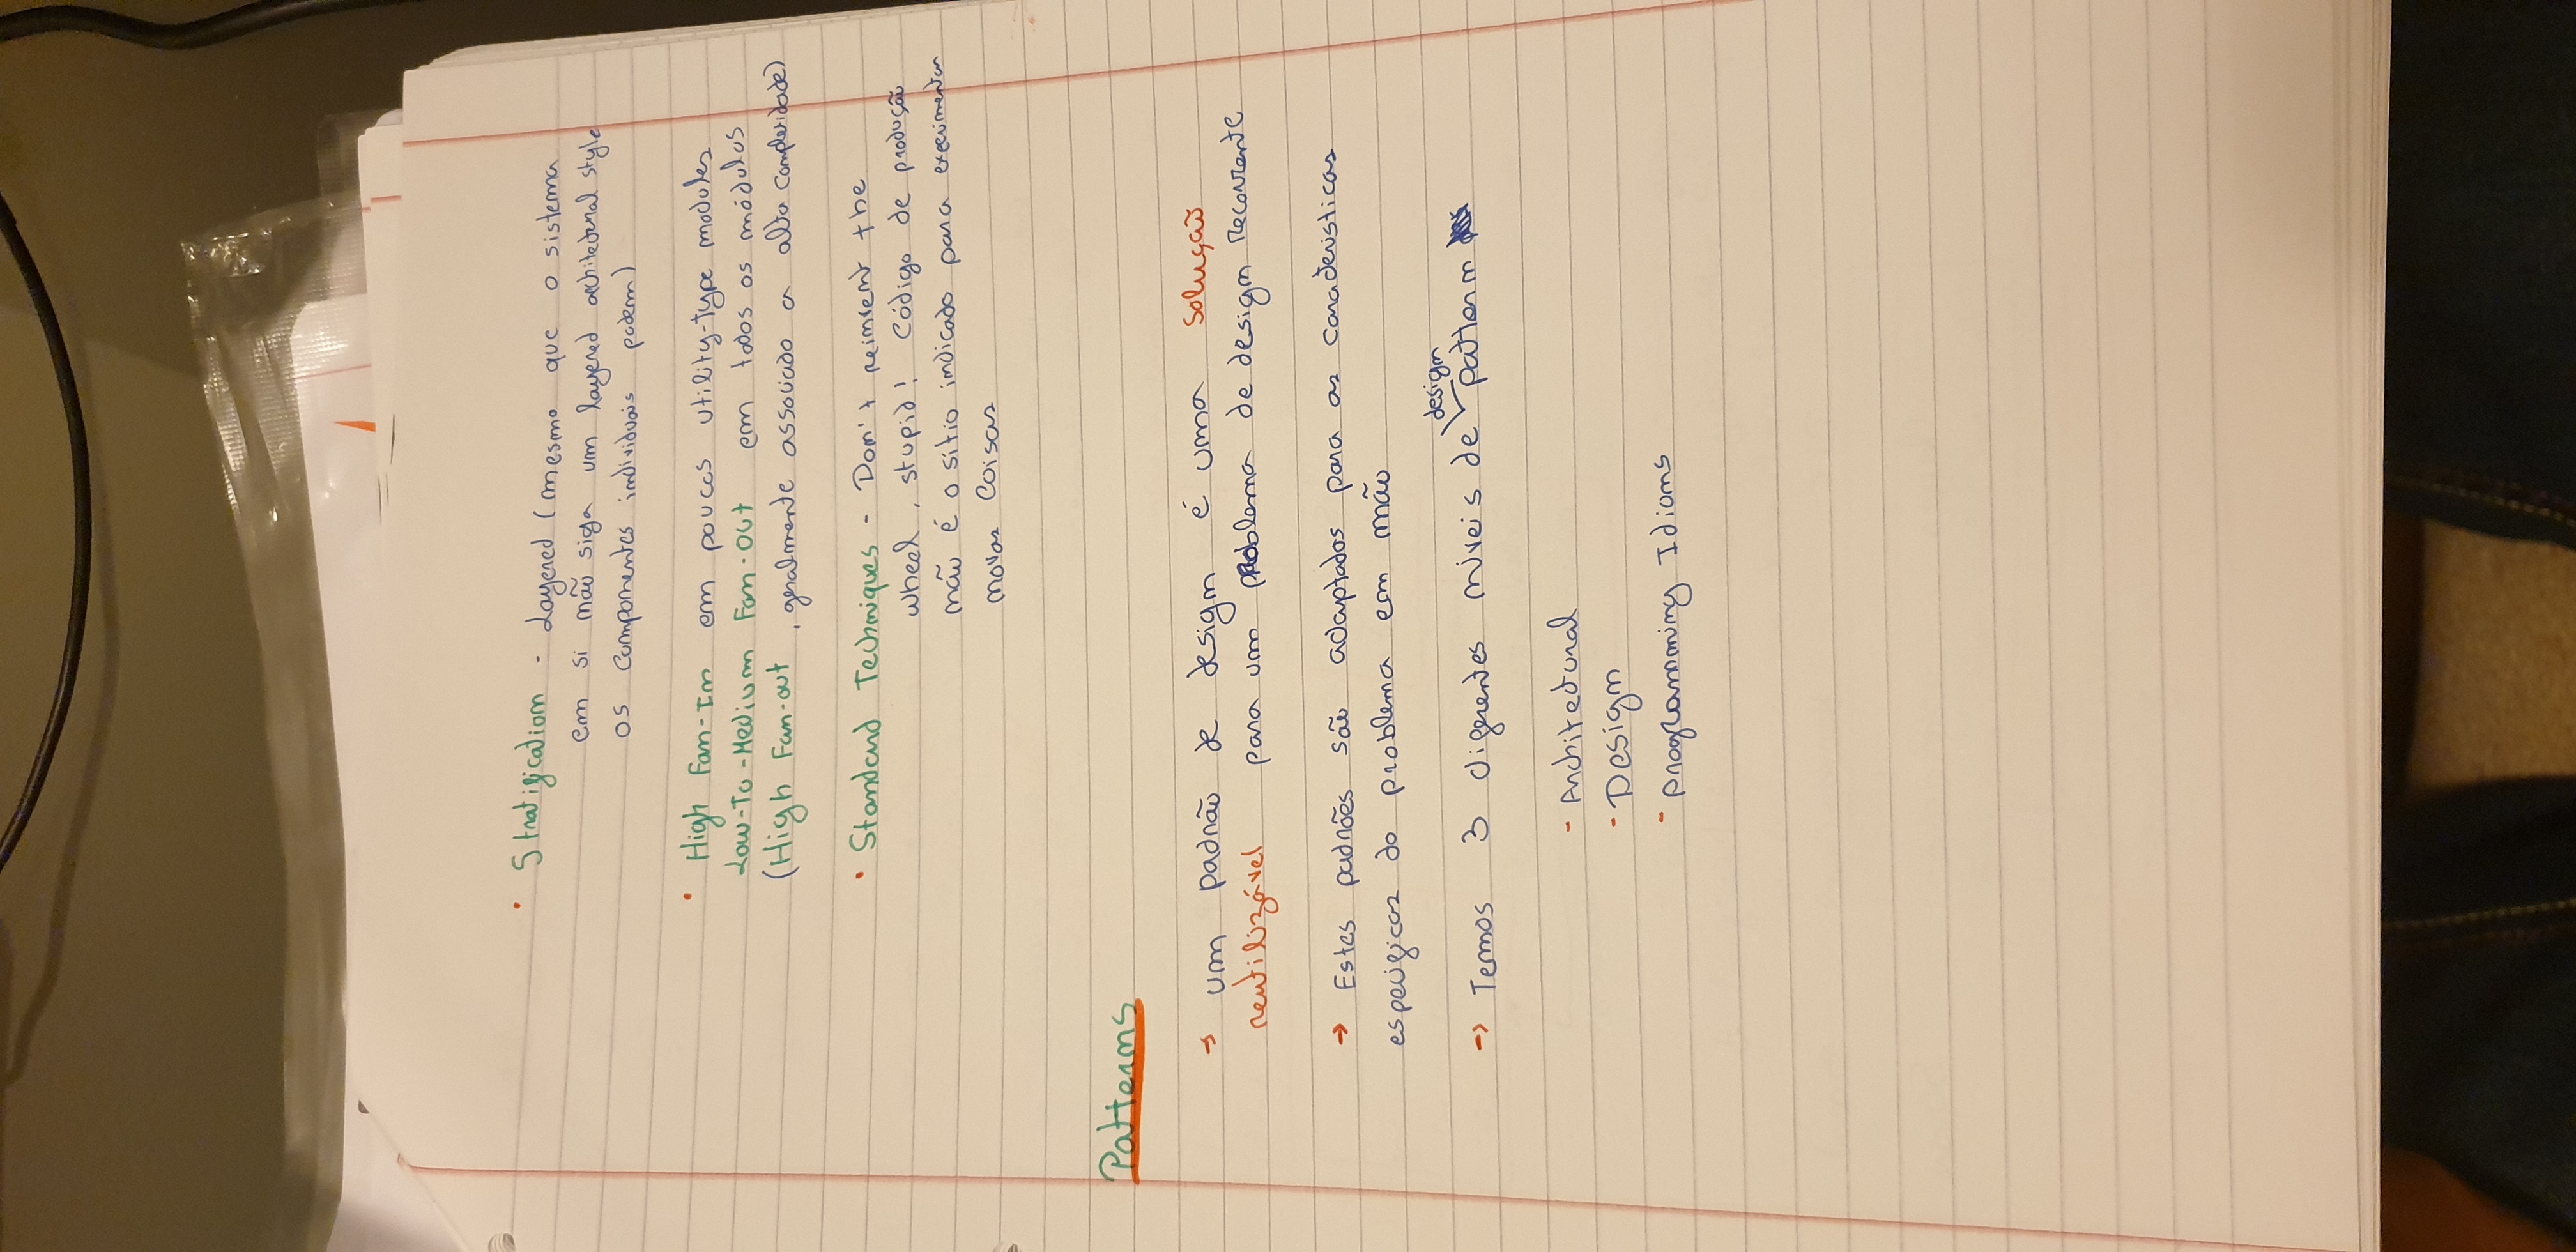 • Stratification - Layered (mesmo que o sistema
em si não siga um layered architectural style
os componentes individuais podem)
• High Fan-In em poucos utility-type modules
Low-To-Medium Fan-Out em todos os módulos
(High Fan-out, geralmente associado a alta complexidade)
• Standard Techniques - Don't reinvent the
wheel, stupid! Código de produção
não é o sítio indicado para experimentar
novas coisas
Patterns
→ um padrão de design é uma solução
reutilizável para um problema de design recorrente
→ Estes padrões são adaptados para as características
específicas do problema em mão
→ Temos 3 diferentes níveis de design pattern
- Architectural
- Design
- Programming Idioms